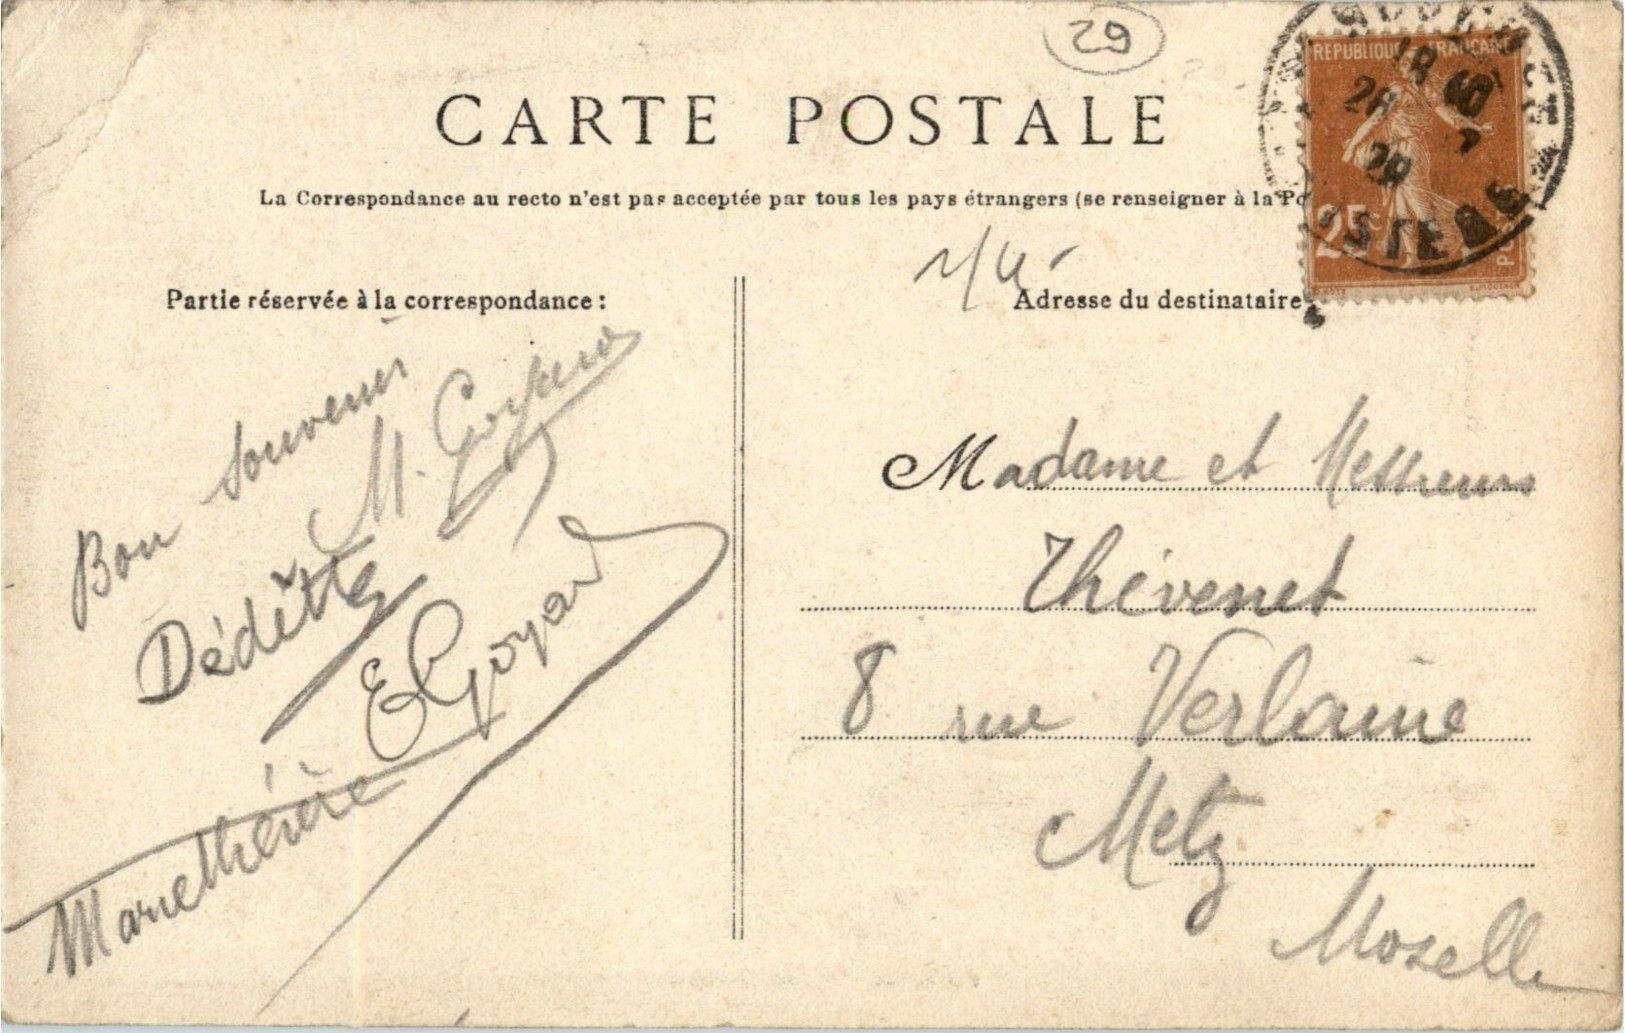 29
CARTE POSTALE
La Correspondance au recto n'est pas acceptée par tous les pays étrangers (se renseigner à la Po
REPUBLIQUE FRANCAISE
18 40
28 7
29
25c
Partie réservée à la correspondance :
Adresse du destinataire
Bon souvenir
M. Goyard
Dédétte
E Goyard
Mariethérèse
Madame et Messieurs
Thévenet
8 rue Verlaine
Metz
Moselle